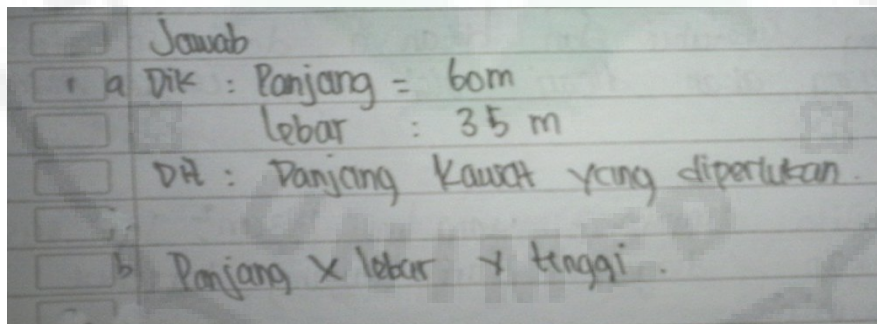 Jawab
1 a Dik : Panjang = 60m
lebar : 35 m
Dit : Panjang Kawat yang diperlukan.
b Panjang x lebar x tinggi.
UNIMED